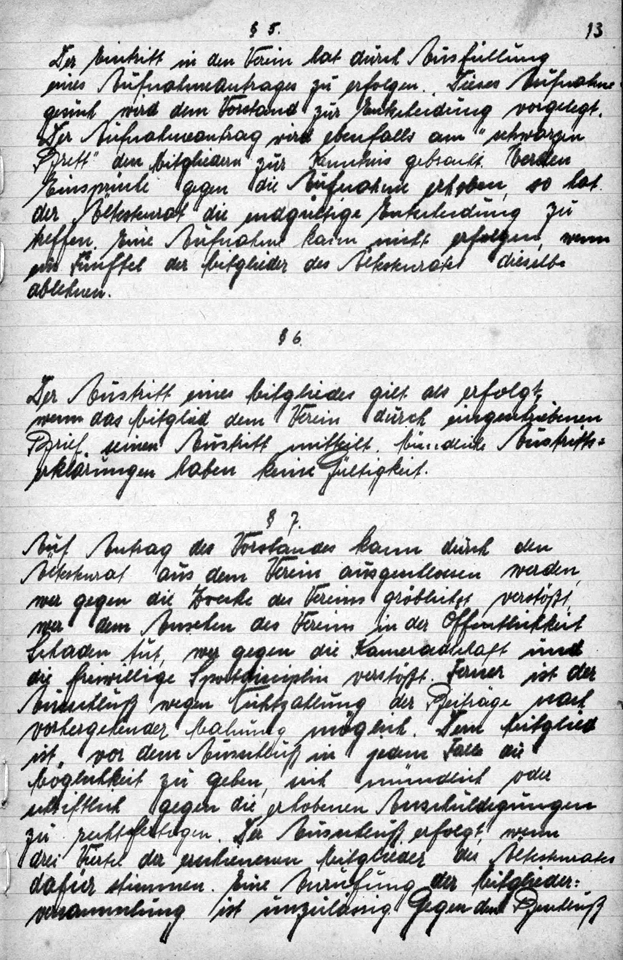 § 5. 13
Der Eintritt in den Verein hat durch Ausfüllung
eines Aufnahmeantrages zu erfolgen. Dieses Aufnahme-
gesuch wird dem Vorstand zur Entscheidung vorgelegt.
Der Aufnahmeantrag wird ebenfalls am "schwarzen
Brett" den Mitgliedern zur Kenntnis gebracht. Werden
Einsprüche gegen die Aufnahme erhoben, so hat
der Ältestenrat die endgültige Entscheidung zu
treffen. Eine Aufnahme kann nicht erfolgen, wenn
ein Fünftel der Mitglieder des Ältestenrates dieselbe
ablehnen.
§ 6.
Der Austritt eines Mitgliedes gilt als erfolgt,
wenn das Mitglied dem Verein durch eingeschriebenen
Brief seinen Austritt mitteilt. Mündliche Austritts=
erklärungen haben keine Gültigkeit.
§ 7.
Auf Antrag des Vorstandes kann durch den
Ältestenrat aus dem Verein ausgeschlossen werden,
wer gegen die Zwecke des Vereins gröblichst verstößt,
wer dem Ansehen des Vereins in der Öffentlichkeit
Schaden tut, wer gegen die Kameradschaft und
die freiwillige Sportdisziplin verstößt. Ferner ist der
Ausschluß wegen Nichtzahlung der Beiträge nach
vorhergehender Mahnung möglich. Dem Mitglied
ist vor dem Ausschluß in jedem Falle die
Möglichkeit zu geben, sich mündlich oder
schriftlich gegen die erhobenen Anschuldigungen
zu rechtfertigen. Der Ausschluß erfolgt, wenn
drei Viertel der erschienenen Mitglieder des Ältestenrates
dafür stimmen. Eine Anrufung der Mitglieder=
versammlung ist unzulässig. Gegen den Beschluß